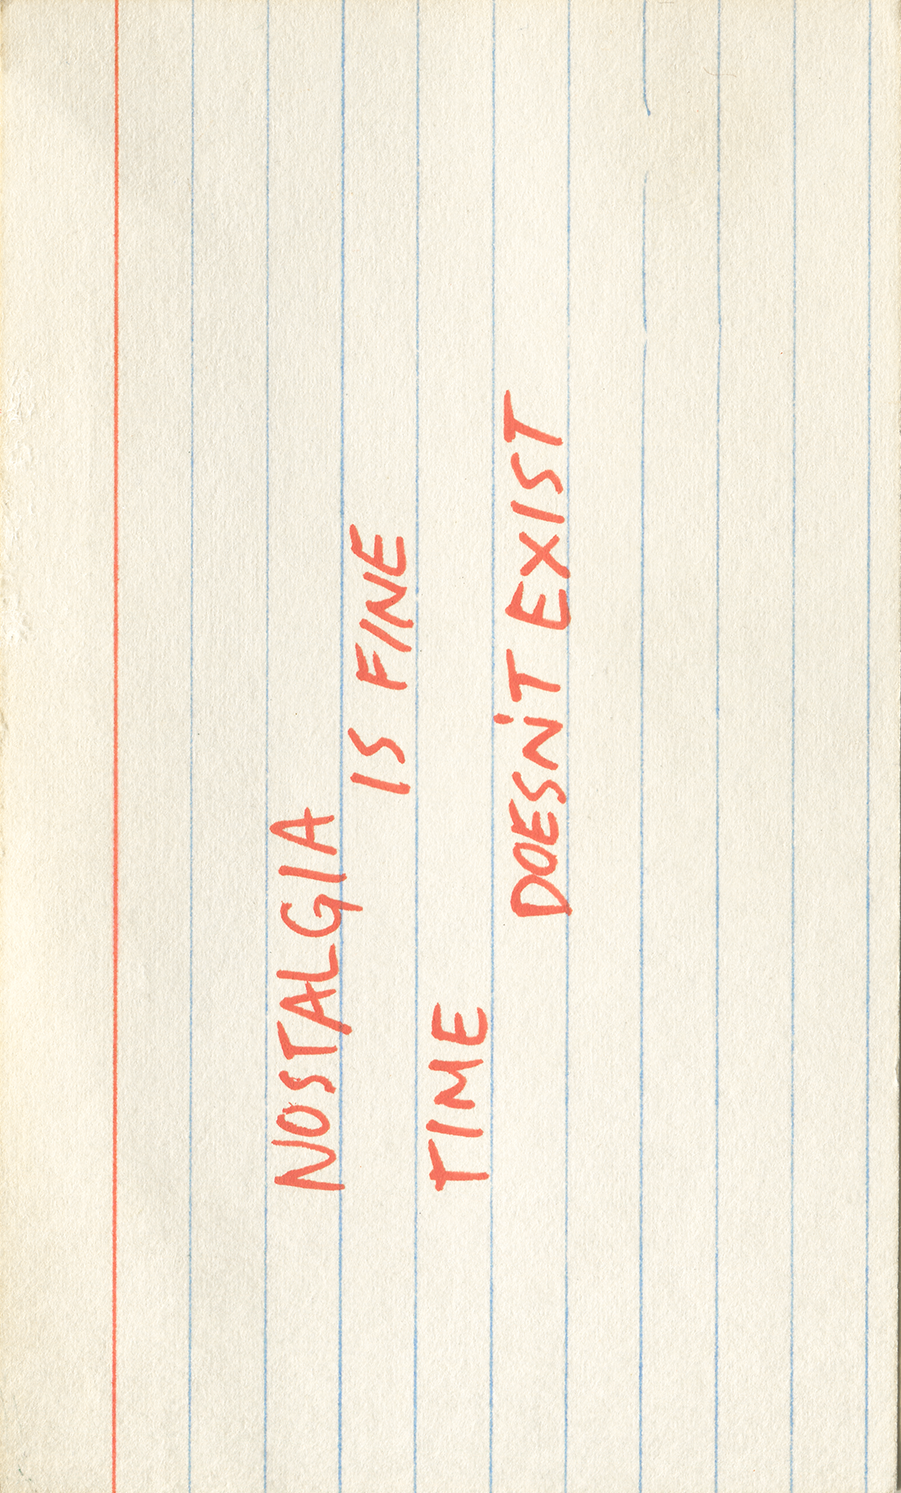 NOSTALGIA
IS FINE
TIME
DOESN'T EXIST